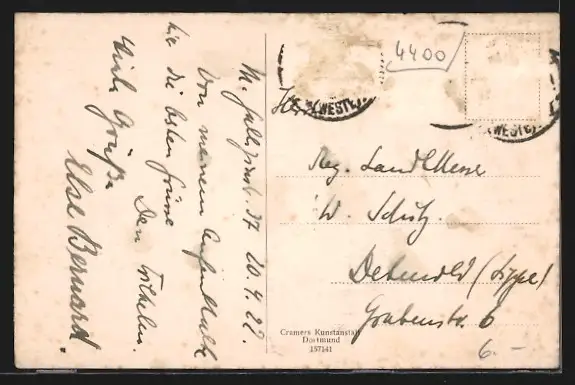 20.4.22.
Von meinem Aufenthalt
hie die besten Grüsse
Den
Viele Grüße
Else Bernard
4400
(WESTF)
(WESTF)
Herrn
Reg.
W. Schütz.
Detmold (Lippe)
Grabenstr. 6
6.-
Cramers Kunstanstalt
Dortmund
157141